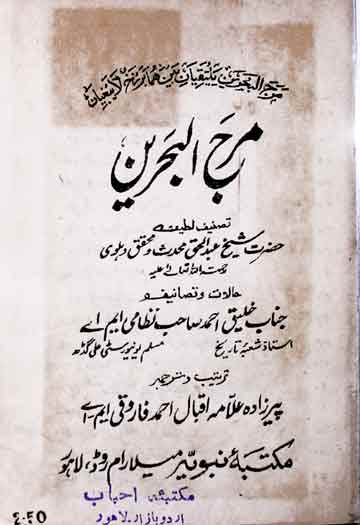 مرج البحرین یلتقیان بین ہما برزخ لا یبغیان
مرج البحرین
تصنیف لطیف
حضرت شیخ عبد الحق محدث و محقق دہلوی
رحمۃ اللہ تعالیٰ علیہ
حالات و تصانیف
جناب خلیق احمد صاحب نظامی ایم اے
استاذ شعبۂ تاریخ مسلم یونیورسٹی علی گڈھ
ترتیب و ترجمہ
پیرزادہ علامہ اقبال احمد فاروقی ایم-اے
مکتبۂ نبویہ میلارام روڈ، لاہور
مکتبہ احباب
اردو بازار لاہور